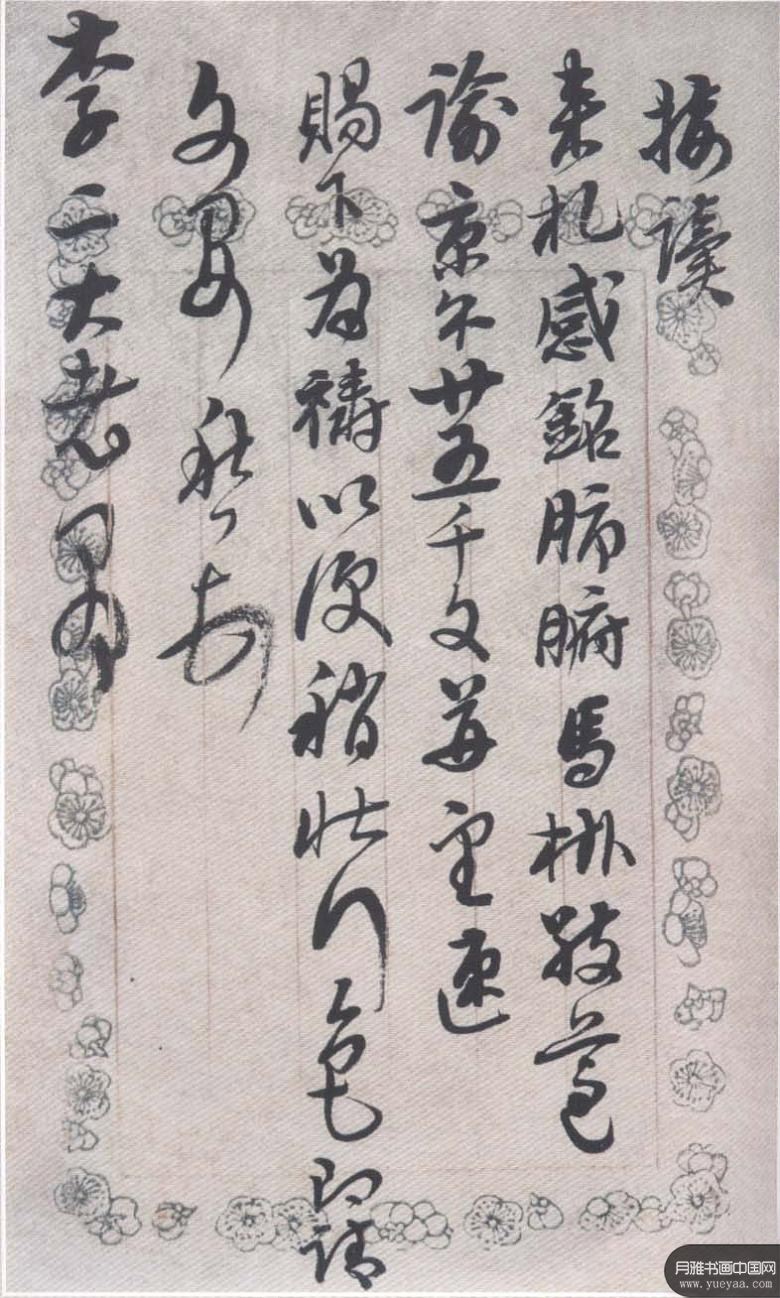 接讀
来札感銘肺腑馬褂敬遵
諭京尓廿五千文並望速
賜下為禱以便稍壯行色即請
文安
李二大老爺
月雅书画中国网
www.yueyaa.com